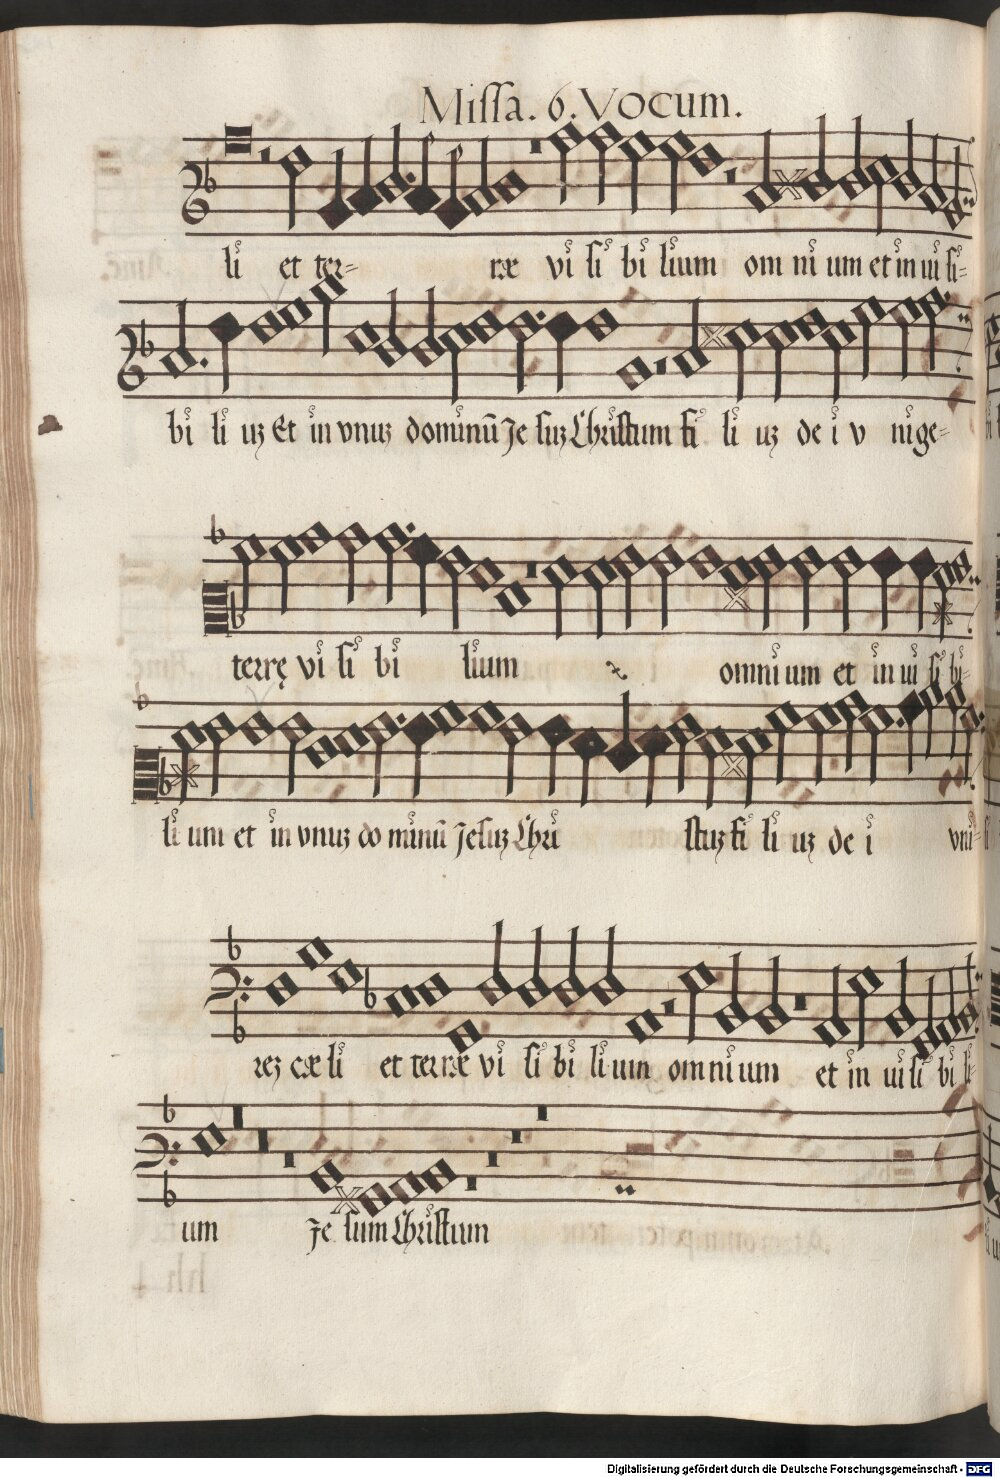 Missa. 6. Vocum.
li et ter= ræ vi si bi lium om ni um et in ui si=
bi li uz Et in vnuz dominū Je suz Christum fi li uz de i v nige=
terrę vi si bi lium omnium et in ui si bi=
li um et in vnuz do minū Jesuz Chri stuz fi li uz de i vni=
rez cæ li et terræ vi si bi li um omnium et in ui si bi li=
um Je sum Christum
Digitalisierung gefördert durch die Deutsche Forschungsgemeinschaft - DFG